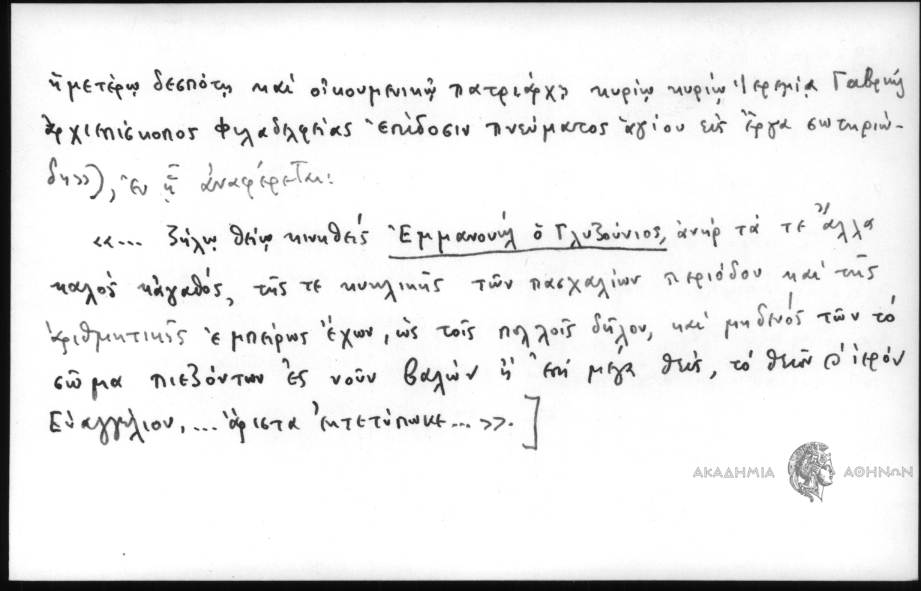 ἡμετέρῳ δεσπότῃ καί οἰκουμενικῷ πατριάρχῃ κυρίῳ κυρίῳ Ἱερεμίᾳ Γαβριήλ
ἀρχιεπίσκοπος Φιλαδελφείας ἐπίδοσιν πνεύματος ἁγίου εἰς ἔργα σωτηριώ-
δη»), ἐν ᾗ ἀναφέρεται:
«... ζήλῳ θείῳ κινηθείς Ἐμμανουήλ ὁ Γλυζούνιος, ἀνήρ τά τε ἄλλα
καλός κἀγαθός, τῆς τε κυκλικῆς τῶν πασχαλίων περιόδου καί τῆς
ἀριθμητικῆς ἐμπείρως ἔχων, ὡς τοῖς πολλοῖς δῆλον, καί μηδενός τῶν τό
σῶμα πιεζόντων ἐς νοῦν βαλών ἤ ἐπί μέγα θείς, τό θεῖον ἱερόν
Εὐαγγέλιον, ... ἄριστα ἐκτετύπωκε ... ».]
ΑΚΑΔΗΜΙΑ ΑΘΗΝΩΝ